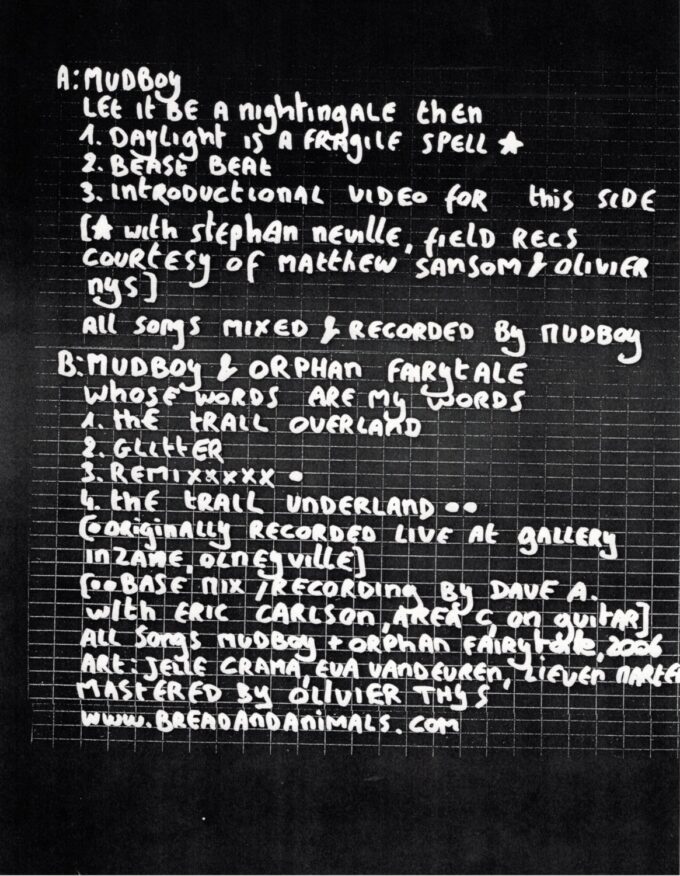 A: MUDBOY
LET IT BE A NIGHTINGALE THEN
1. DAYLIGHT IS A FRAGILE SPELL ★
2. BEAST BEAT
3. INTRODUCTIONAL VIDEO FOR THIS SIDE
[★ WITH STEPHAN NEVILLE, FIELD RECS
COURTESY OF MATTHEW SANSOM & OLIVIER
NYS]
ALL SONGS MIXED & RECORDED BY MUDBOY
B: MUDBOY & ORPHAN FAIRYTALE
WHOSE WORDS ARE MY WORDS
1. THE TRALL OVERLAND
2. GLITTER
3. REMIXXXXX •
4. THE TRALL UNDERLAND ••
[• ORIGINALLY RECORDED LIVE AT GALLERY
INZANE, OLNEYVILLE]
[•• BASE MIX / RECORDING BY DAVE A.
WITH ERIC CARLSON, AREA C, ON GUITAR]
ALL SONGS MUDBOY + ORPHAN FAIRYTALE, 2006
ART: JELLE CRAMA, EVA VANDEUREN, LIEVEN MARTE
MASTERED BY OLIVIER THYS
WWW.BREADANDANIMALS.COM